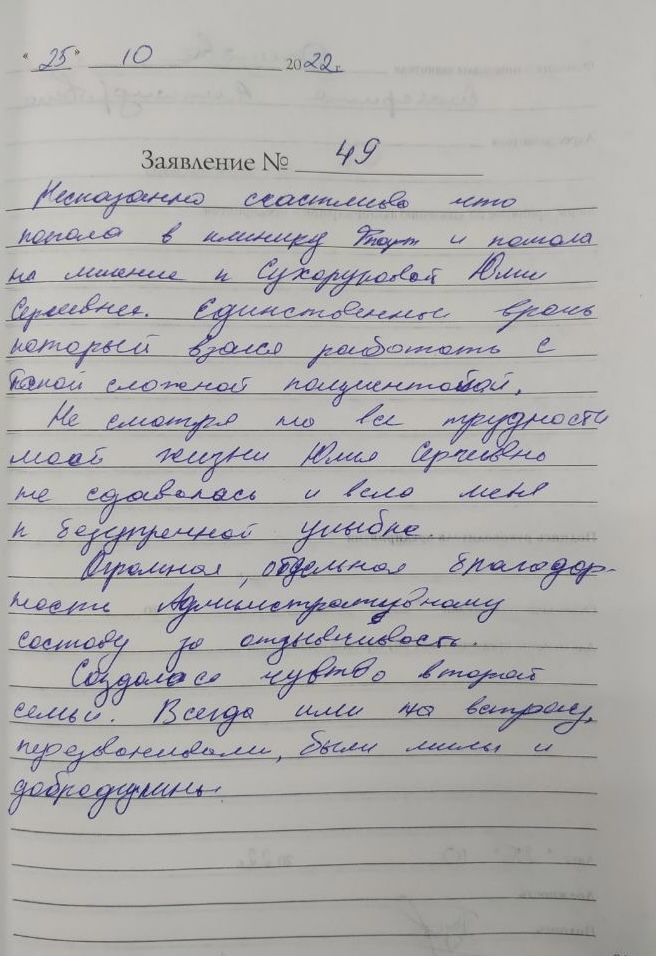 "25" 10 2022 г.
Заявление № 49
Несказанно счастлива что
попала в клинику и попала
на лечение к Сухоруковой Юлии
Сергеевне. Единственное врачь
который взялся работать с
такой сложной пациенткой.
Не смотря на все трудности
моей жизни Юлия Сергеевна
не сдавалась и вела меня
к безупречной улыбке.
Огромная, отдельная благодар-
ность Административному
составу за отзывчивость.
Создалась чувство второй
семьи. Всегда шли на встречу,
перезванивали, были милы и
добродушны.